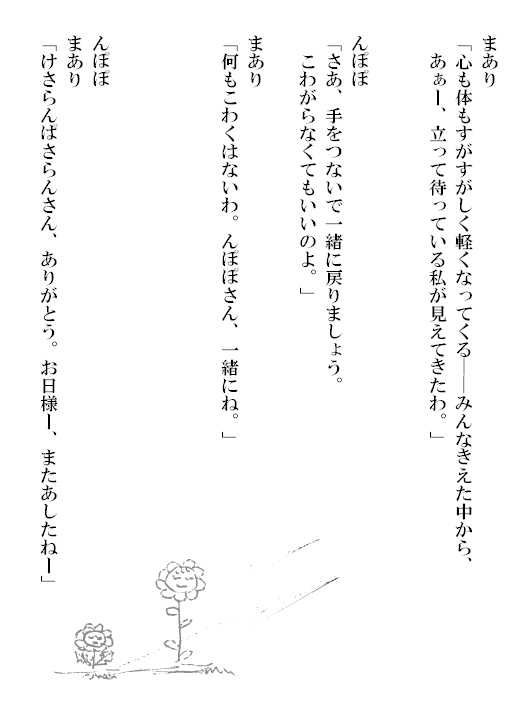 まあり
「心も体もすがすがしく軽くなってくる――みんなきえた中から、
あぁー、立って待っている私が見えてきたわ。」
んぽぽ
「さあ、手をつないで一緒に戻りましょう。
こわがらなくてもいいのよ。」
まあり
「何もこわくはないわ。んぽぽさん、一緒にね。」
んぽぽ
まあり
「けさらんぱさらんさん、ありがとう。お日様ー、またあしたねー」